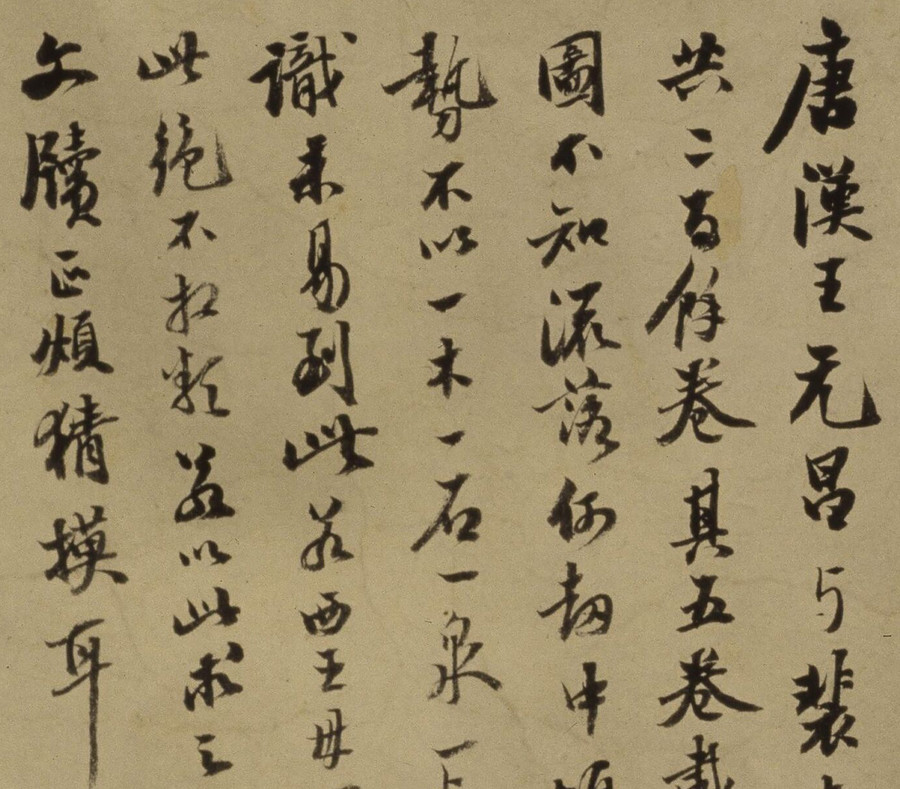 唐漢王元昌与裴
共二百餘卷其五卷載
圖不知流落何劫中
勢不以一木一石一泉一
識未易到此若西王母
此絕不相類若以此求之
文牘正煩猜摸耳